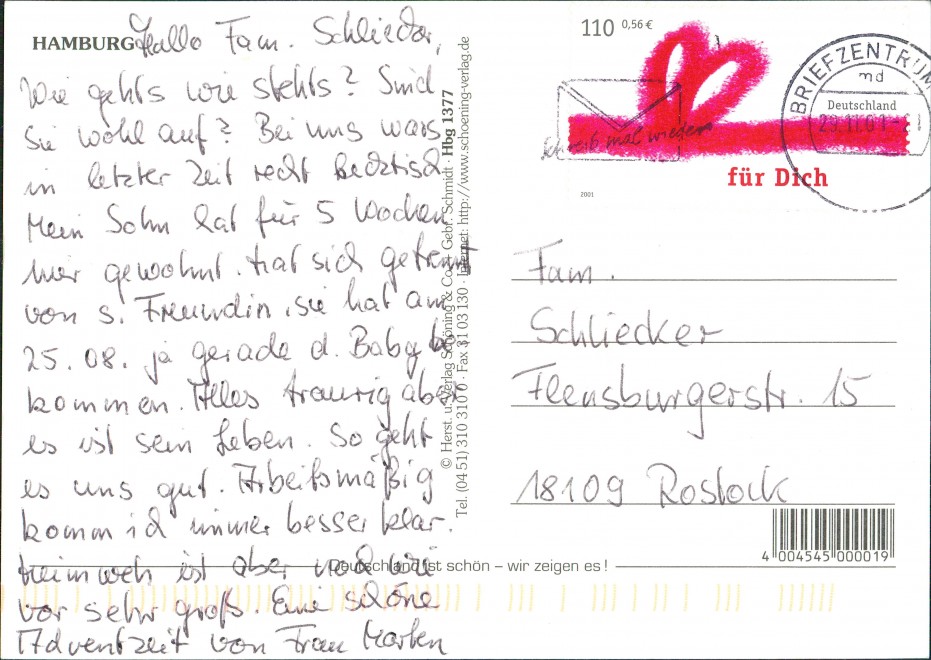 HAMBURG
Hallo Fam. Schliecker,
Wie gehts wie stehts? Sind
sie wohl auf? Bei uns wars
in letzter Zeit recht hecktisch
Mein Sohn hat für 5 Wochen
hier gewohnt. hat sich getrennt
von s. Freundin, sie hat am
25. 08. ja gerade d. Baby be
kommen. Alles traurig aber
es ist sein Leben. So geht
es uns gut. Arbeitsmäßig
komm ich immer besser klar.
Heimweh ist aber nach wie
vor sehr groß. Eine schöne
Adventszeit von Frau Marten
© Herst. u. Verlag Schöning & Co. + Gebr. Schmidt · Hbg 1377
Tel. (04 51) 310 310 · Fax 31 03 130 · Internet: http://www.schoening-verlag.de
110 0,56 €
Schreib mal wieder
für Dich
2001
BRIEFZENTRUM
md
Deutschland
29.11.01
Fam.
Schliecker
Flensburgerstr. 15
18109 Rostock
4 004545 000019
Deutschland ist schön – wir zeigen es!